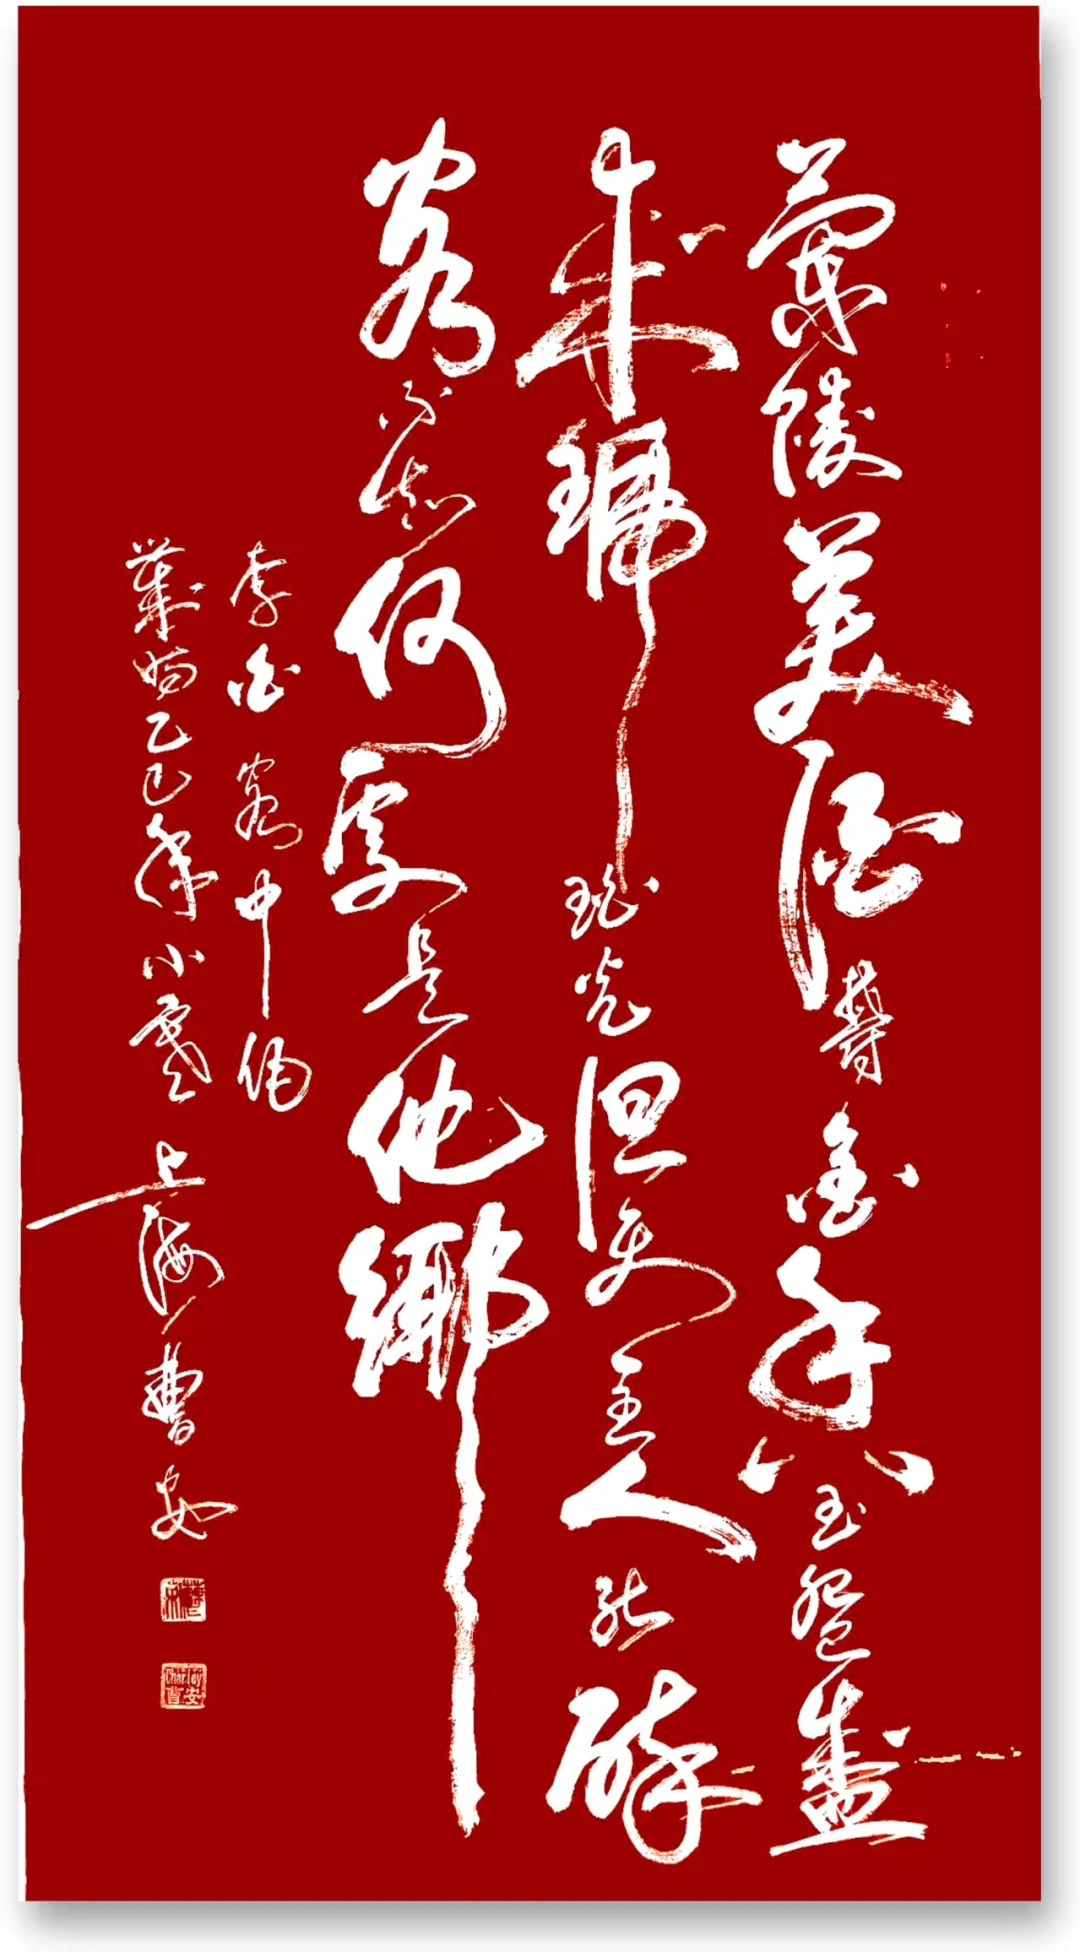 蘭陵美酒鬱金香玉盌盛
来琥珀光但使主人能醉
客不知何處是他鄉
李白客中作
歲乙巳年小雪上海曹安
Charley
曹安